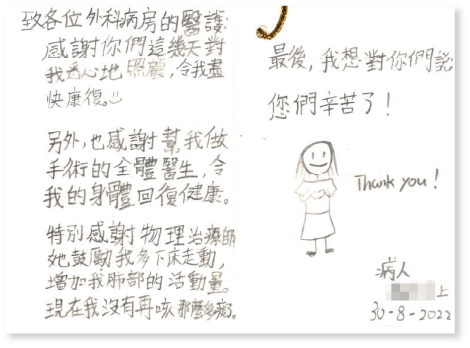 致各位外科病房的醫護:
感謝你們這幾天對
我悉心地照顧，令我盡
快康復。
另外，也感謝幫我做
手術的全體醫生，令
我的身體回復健康。
特別感謝物理治療師
她鼓勵我多下床走動，
增加我肺部的活動量。
現在我沒有再咳那麼多痰了。
最後，我想對你們說
您們辛苦了！
Thank you!
病人
上
30-8-2022